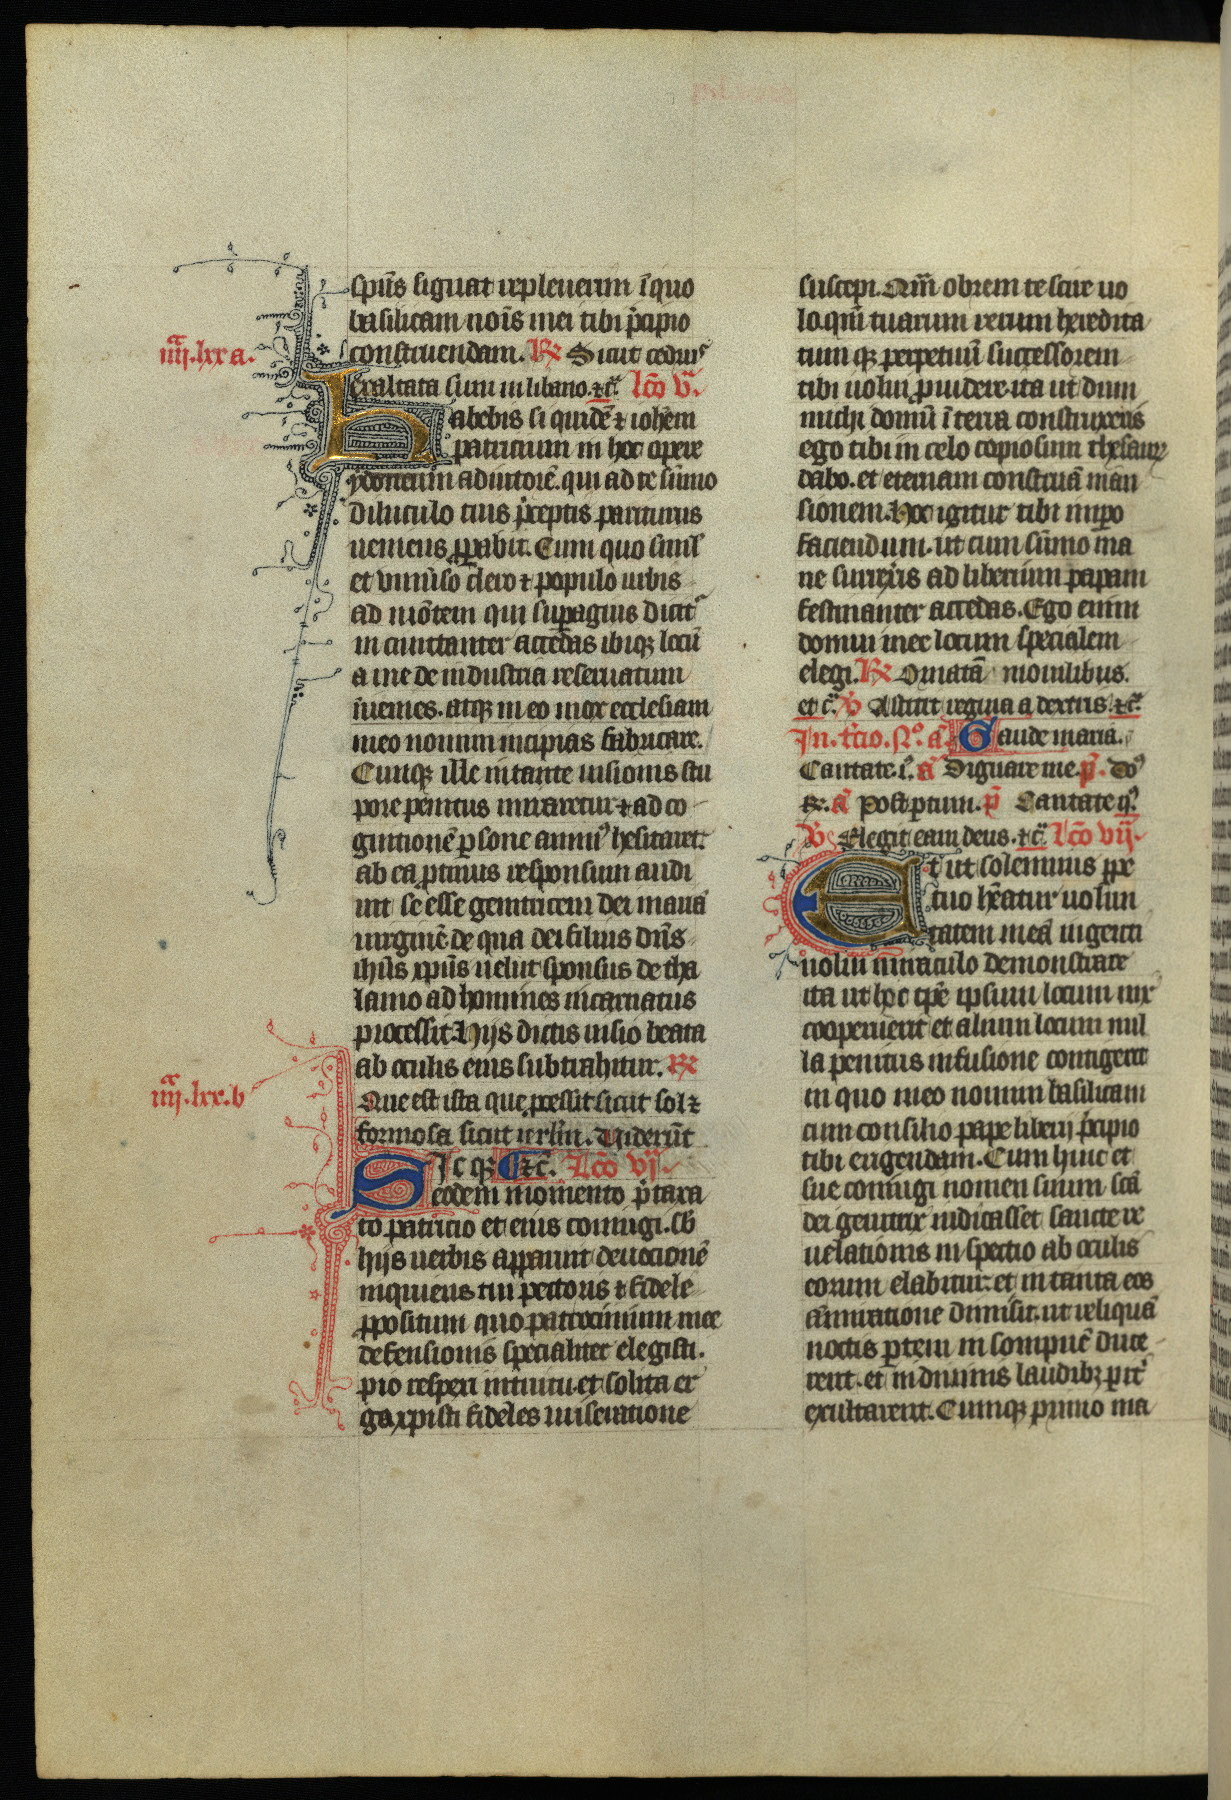 sp̄us signat repleuerim ī quo
basilicam nōis mei tibi p̄cipio
construendam. R̷ Sicut cedrus
iiij. lxx a.
exaltata sum in libano. ⁊c̄. Lc̄o v.ᵃ
Habebis si quidē ⁊ ioh̄em
patricium in hoc opere
ydoneum adiutorē. qui ad te sūmo
diluculo tuis p̄ceptis pariturus
ueniens ꝓꝑabit. Cum quo simul
et vniu̾so clero ⁊ populo urbis
ad mōtem qui sup̲agius dicit᷑
incunctanter accedas ibiqꝫ locū
a me de industria reseruatum
īuenies. atqꝫ in eo mox ecclesiam
meo nomini incipias fabricare.
Cunqꝫ ille in tante uisionis stu
pore penitus miraretur ⁊ ad co
gnitionē ꝑsone animꝰ hesitaret.
ab ea ꝓtinus responsum audi
uit se esse genitricem dei mariā
uirginē de qua dei filius dn̄s
ih̄us xp̄us uelut sponsus de tha
lamo ad homines incarnatus
processit. Hijs dictis uisio beata
ab oculis eius subtrahitur. R̷
iiij. lxx. b
Que est ista que ꝓcessit sicut sol ⁊
formosa sicut ierl̄m. Viderūt
Sic qꝫ ⁊c̄. Lc̄o vj.ᵃ
eodem momento p̄taxa
to patricio et eius coniugi. sb̄
hijs uerbis apparuit deuocionē
inquiens tui pectoris ⁊ fidele
ꝓpositum quo patrocinium mee
defensionis specialiter elegisti.
pio respexi intuitu. et solita er
ga xp̄isti fideles miseratione
suscepi. Qm̄ obrem te scire uo
lo. qm̄ tuarum rerum heredita
tum qꝫ perpetuū successorem
tibi uolui ꝓuidere. ita ut dum
michi domū ī terra construxeris
ego tibi in celo copiosum thesaurū
dabo. et eternam construā man
sionem. Hoc igitur tibi impo
faciendum. ut cum sūmo ma
ne surrex̾is ad liberium papam
festinanter accedas. Ego enim
domui mee locum specialem
elegi. R̷ Ornatā monilibus.
et c̄. V̷ Astitit regina a dextris. ⁊c̄.
In. t̄cio. N̊. a̅ Gaude maria.
Cantate. i̊. a̅ Dignare me. p̄. Dn̄s
R̄. a̅ Post ꝑtum. p̄ Cantate q̊.
V̷ Elegit eam deus. ⁊c̄. Lc̄o vij.ᵃ
Et ut solemnius ꝑpe
tuo hēatur uolun
tatem meā ingenti
uolui miraculo demonstrare
ita ut hoc tp̄e ipsum locum nix
cooperuerit et alium locum nul
la penitus infusione contigerit
in quo meo nomini basilicam
cum consilio pape liberij p̄cipio
tibi erigendam. Cum huic et
sue coniugi nomen suum sc̄a
dei genitrix indicasset sancte re
uelationis inspectio ab oculis
eorum elabitur. et in tanta eos
āmiratione dimisit. ut reliquā
noctis ꝑtem in sompnē duce
rent. et in diuinis laudibꝫ ꝑit̾
exultarent. Cumqꝫ primo ma